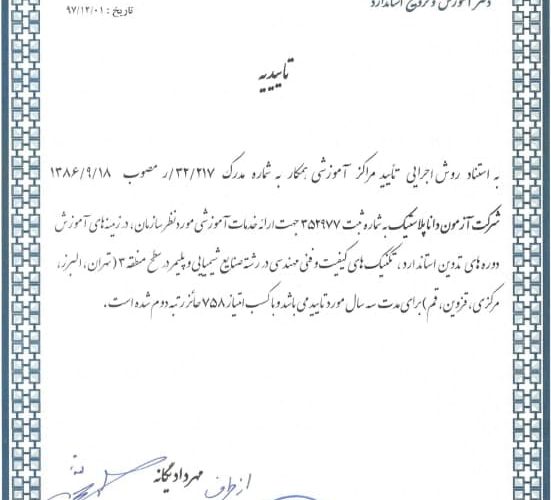 دفتر آموزش و ترویج استاندارد
تاریخ : ۹۷/۱۲/۰۱
تاییدیه
به استناد روش اجرایی تأیید مراکز آموزشی همکار به شماره مدرک ۳۲/۲۱۷/ر مصوب ۱۳۸۶/۹/۱۸
شرکت آزمون دانا پلاستیک به شماره ثبت ۳۵۲۹۷۷ جهت ارائه خدمات آموزشی مورد نظر سازمان، در زمینه های آموزش
دوره های تدوین استاندارد، تکنیک های کیفیت و فنی مهندسی در رشته صنایع شیمیایی و پلیمر در سطح منطقه ۳ (تهران، البرز،
مرکزی، قزوین، قم) برای مدت سه سال مورد تایید می باشد و با کسب امتیاز ۷۵۸ حائز رتبه دوم شده است.
مهرداد یگانه
از طرف